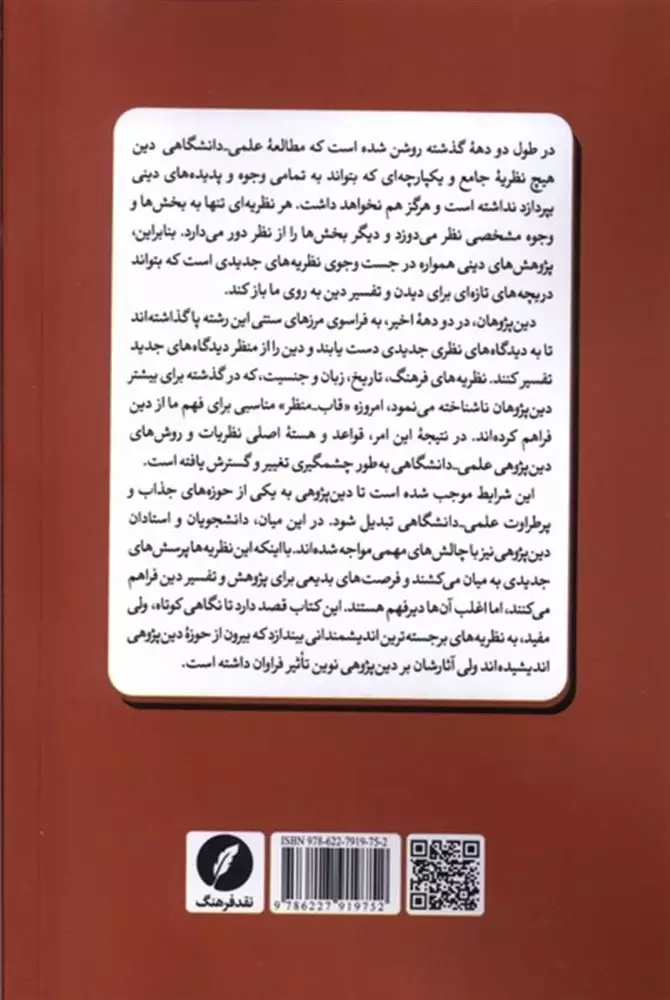 در طول دو دههٔ گذشته روشن شده است که مطالعهٔ علمی‌ـ‌دانشگاهی دین
هیچ نظریهٔ جامع و یکپارچه‌ای که بتواند به تمامی وجوه و پدیده‌های دینی
بپردازد نداشته است و هرگز هم نخواهد داشت. هر نظریه‌ای تنها به بخش‌ها و
وجوه مشخصی نظر می‌دوزد و دیگر بخش‌ها را از نظر دور می‌دارد. بنابراین،
پژوهش‌های دینی همواره در جست وجوی نظریه‌های جدیدی است که بتواند
دریچه‌های تازه‌ای برای دیدن و تفسیر دین به روی ما باز کند.
دین‌پژوهان، در دو دههٔ اخیر، به فراسوی مرزهای سنتی این رشته پا گذاشته‌اند
تا به دیدگاه‌های نظری جدیدی دست یابند و دین را از منظر دیدگاه‌های جدید
تفسیر کنند. نظریه‌های فرهنگ، تاریخ، زبان و جنسیت، که در گذشته برای بیشتر
دین‌پژوهان ناشناخته می‌نمود، امروزه «قاب‌ـ‌منظر» مناسبی برای فهم ما از دین
فراهم کرده‌اند. در نتیجهٔ این امر، قواعد و هستهٔ اصلی نظریات و روش‌های
دین‌پژوهی علمی‌ـ‌دانشگاهی به‌طور چشمگیری تغییر و گسترش یافته است.
این شرایط موجب شده است تا دین‌پژوهی به یکی از حوزه‌های جذاب و
پرطراوت علمی‌ـ‌دانشگاهی تبدیل شود. در این میان، دانشجویان و استادان
دین‌پژوهی نیز با چالش‌های مهمی مواجه شده‌اند. با اینکه این نظریه‌ها پرسش‌های
جدیدی به میان می‌کشند و فرصت‌های بدیعی برای پژوهش و تفسیر دین فراهم
می‌کنند، اما اغلب آن‌ها دیرفهم هستند. این کتاب قصد دارد تا نگاهی کوتاه، ولی
مفید، به نظریه‌های برجسته‌ترین اندیشمندانی بیندازد که بیرون از حوزهٔ دین‌پژوهی
اندیشیده‌اند ولی آثارشان بر دین‌پژوهی نوین تأثیر فراوان داشته است.
ISBN 978-622-7919-75-2
9 786227 919752
نقدفرهنگ